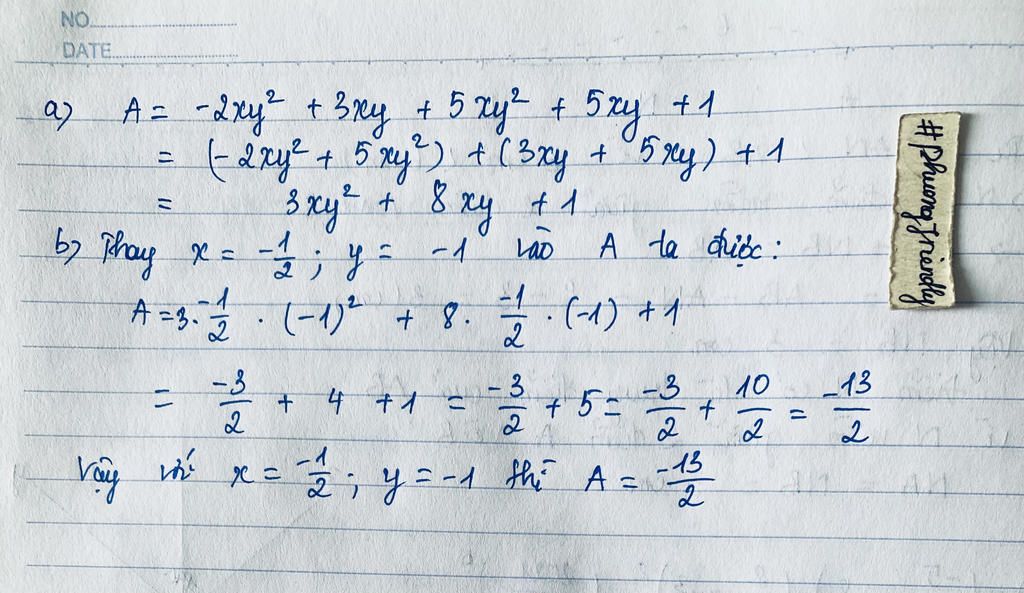 NO.
DATE.
a) A = -2xy² + 3xy + 5xy² + 5xy + 1
= (-2xy² + 5xy²) + (3xy + 5xy) + 1
= 3xy² + 8xy + 1
b) Thay x = -1/2 ; y = -1 vào A ta được:
A = 3. -1/2 . (-1)² + 8. -1/2 . (-1) + 1
= -3/2 + 4 + 1 = -3/2 + 5 = -3/2 + 10/2 = -13/2
Vậy với x = -1/2 ; y = -1 thì A = -13/2
#phuongfriendly